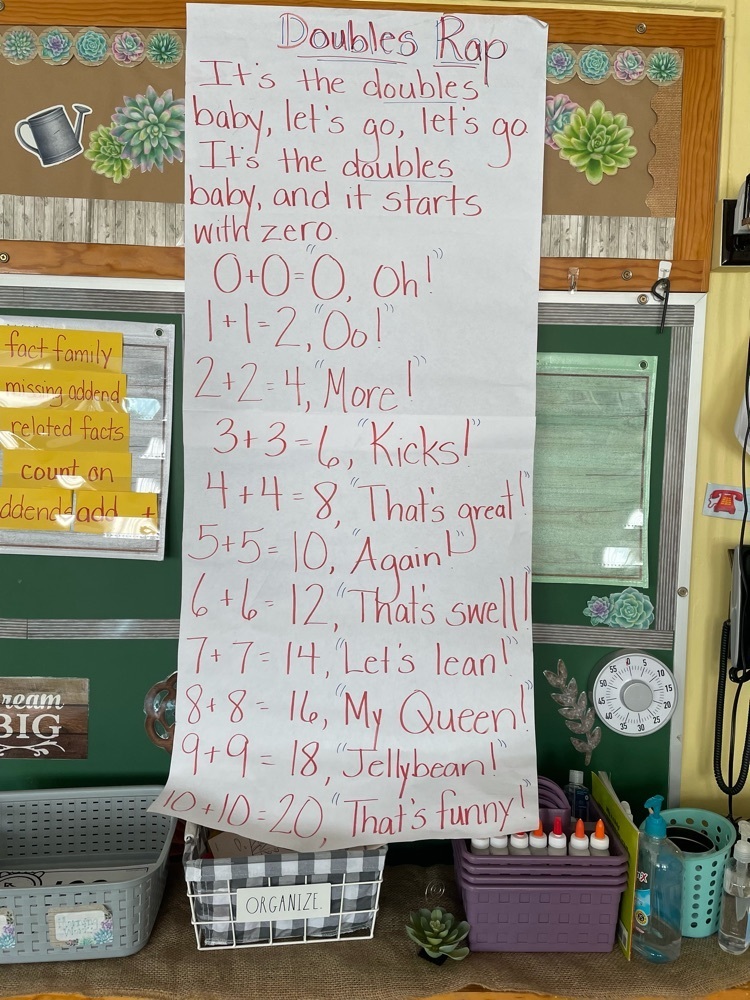 Doubles Rap
It's the doubles
baby, let's go, let's go.
It's the doubles
baby, and it starts
with zero.
0+0="0, Oh!"
1+1=2, "Oo!"
2+2=4, "More!"
3+3=6, "Kicks!"
4+4=8, "That's great!"
5+5=10, "Again!"
6+6=12, "That's swell!"
7+7=14, "Let's lean!"
8+8=16, "My Queen!"
9+9=18, "Jellybean!"
10+10=20, "That's funny!"
fact family
missing addend
related facts
count on
ddends add +
ream
BIG
0 5 10 15 20 25 30 35 40 45 50 55
ORGANIZE.